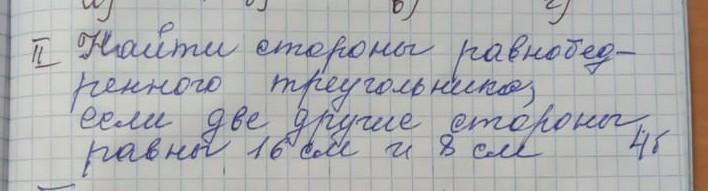 а) б) в) г)
II Найти стороны равнобед-
ренного треугольника,
если две другие стороны
равны 16 см и 8 см 4б